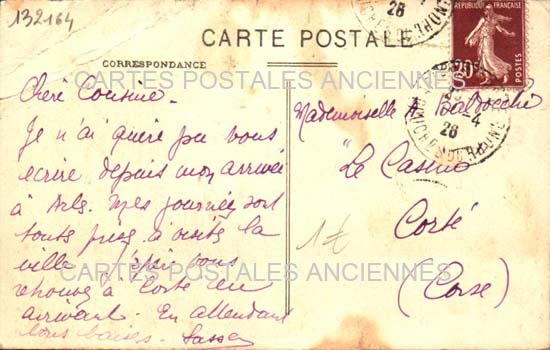 132164
26
REPUBLIQUE FRANÇAISE
POSTES
CARTE POSTALE
CORRESPONDANCE
CARTES POSTALES ANCIENNES
Chère Cousine -
Je n'ai guère pu vous
écrire depuis mon arrivée
à Arles. Mes journées sont
toutes prises à visiter la
ville
vous
à Corte en
arrivant. En attendant
bons baisers.
Mademoiselle A
"Le Casino
Corté
(Corse)
1€
-4
26
BOUCHES DU RHONE
CARTES POSTALES ANCIENNES